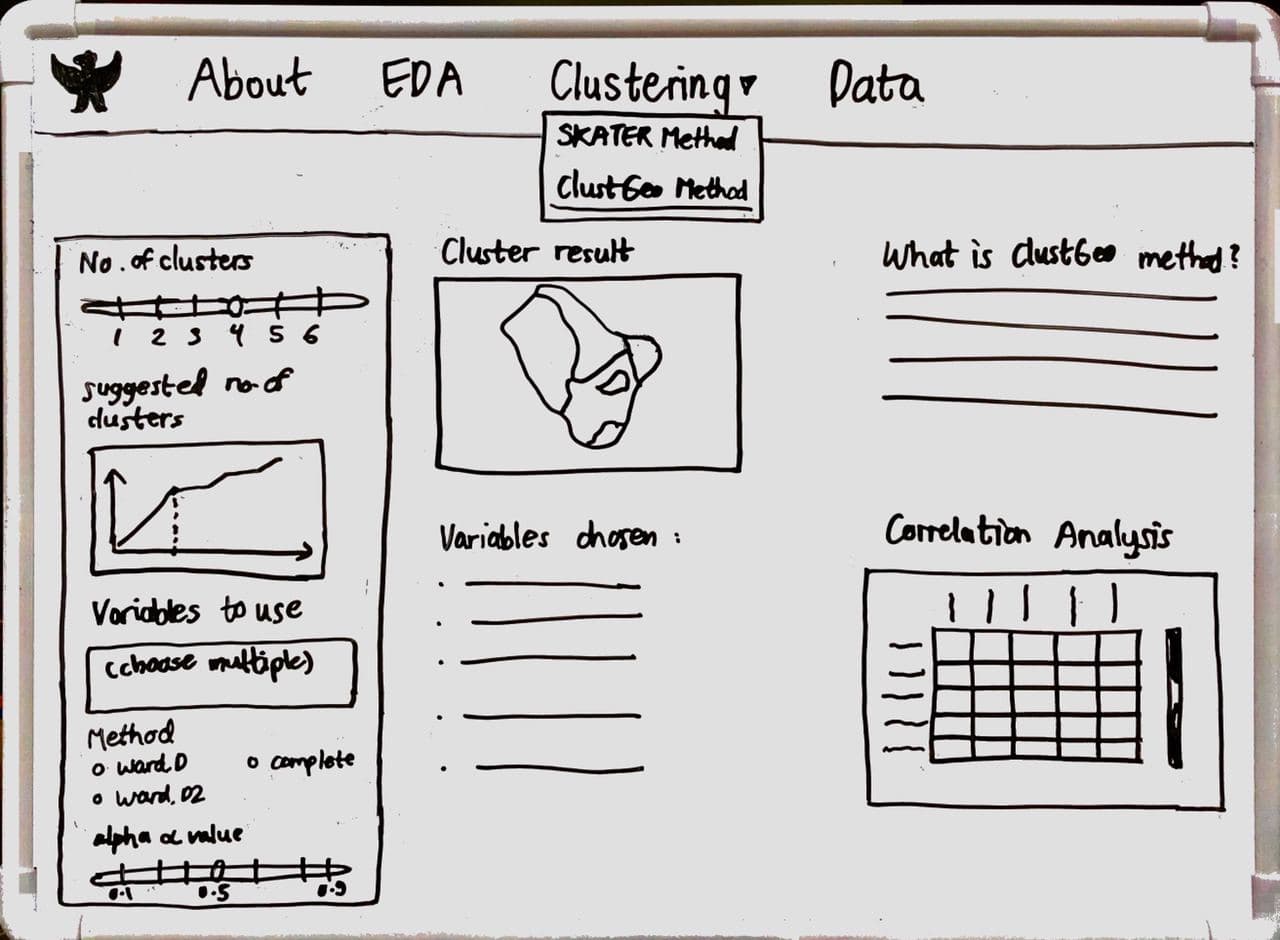 About EDA Clustering▾ Data
SKATER Method
ClustGeo Method
No. of clusters
1 2 3 4 5 6
suggested no. of
clusters
Variables to use
(choose multiple)
Method
o ward.D o complete
o ward.D2
alpha α value
0.1 0.5 0.9
Cluster result
Variables chosen :
What is ClustGeo method?
Correlation Analysis